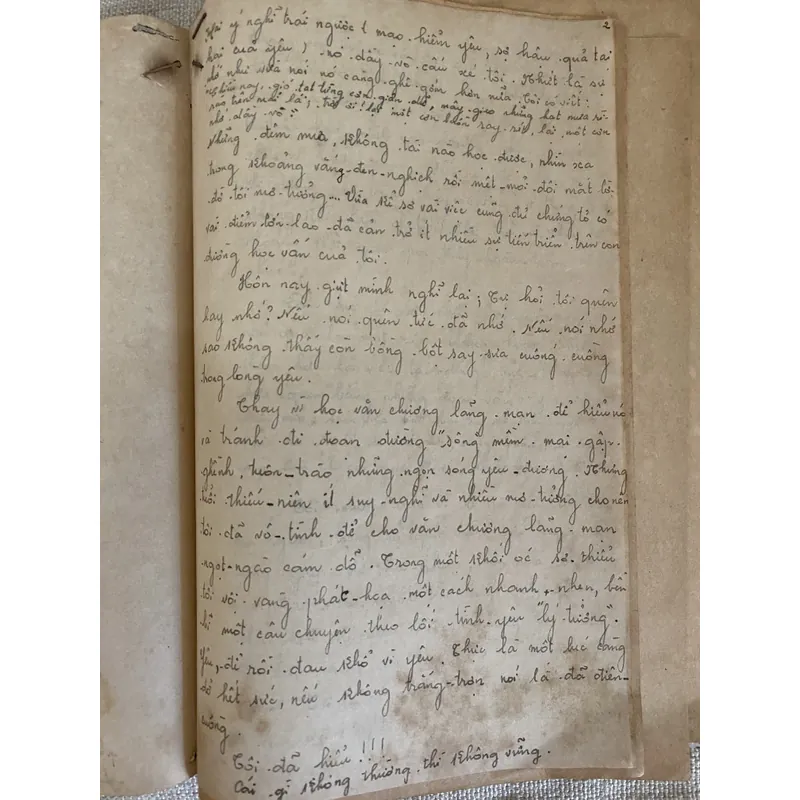 2
Hai ý nghĩ trái ngược ( mạo hiểm yêu, sợ hậu quả tai
hại của yêu ) nó dầy vò cấu xé tôi. Nhứt là sự
nhớ như vừa nói nó càng ghê gớm hơn nữa. Tôi có viết:
"Chiều nay, gió tạt từng cơn giận dữ, mây gieo những hạt mưa rỉ-
rao trên mái lá; trời ơi! lại một cơn buồn say-sưa, lại một cơn
nhớ dầy vò"
Những đêm mưa, không tài nào học được, nhìn xa
trong khoảng vắng-đen-nghịch rồi mệt-mỏi đôi mắt lờ-
đờ tôi mơ-tưởng... Vừa kể sơ vài việc cũng đủ chứng tỏ có
vài điểm lớn-lao đã cản trở ít nhiều sự tiến triển trên con
đường học vấn của tôi.
Hôn nay giựt mình nghĩ lại; Tự hỏi tôi quên
hay nhớ? Nếu nói quên tức đã nhớ. Nếu nói nhớ
sao không thấy còn bồng bột say-sưa cuồng-cuồng
trong lòng yêu.
Thay vì học văn chương lãng-mạn để hiểu nó
và tránh đi đoạn đường "sông mềm mại gập-
ghềnh, tuôn-trào những ngọn sóng yêu-đương. Nhưng
tuổi thiếu-niên ít suy-nghĩ và nhiều mơ-tưởng cho nên
tôi đã vô-tình để cho văn chương lãng-mạn
ngọt-ngào cám dỗ. Trong một khối óc sơ-thiểu
tôi vội vàng phát-họa một cách nhanh-nhẹn, bền
bỉ một câu chuyện theo lối tình-yêu "lý-tưởng".
Yêu, để rồi đau khổ vì yêu. Thực là một lúc càng
dở hết sức, nếu không trắng-trợn nói là đã điên-
cuồng.
Tôi đã hiểu!!!
Cái gì không thường thì không vững.